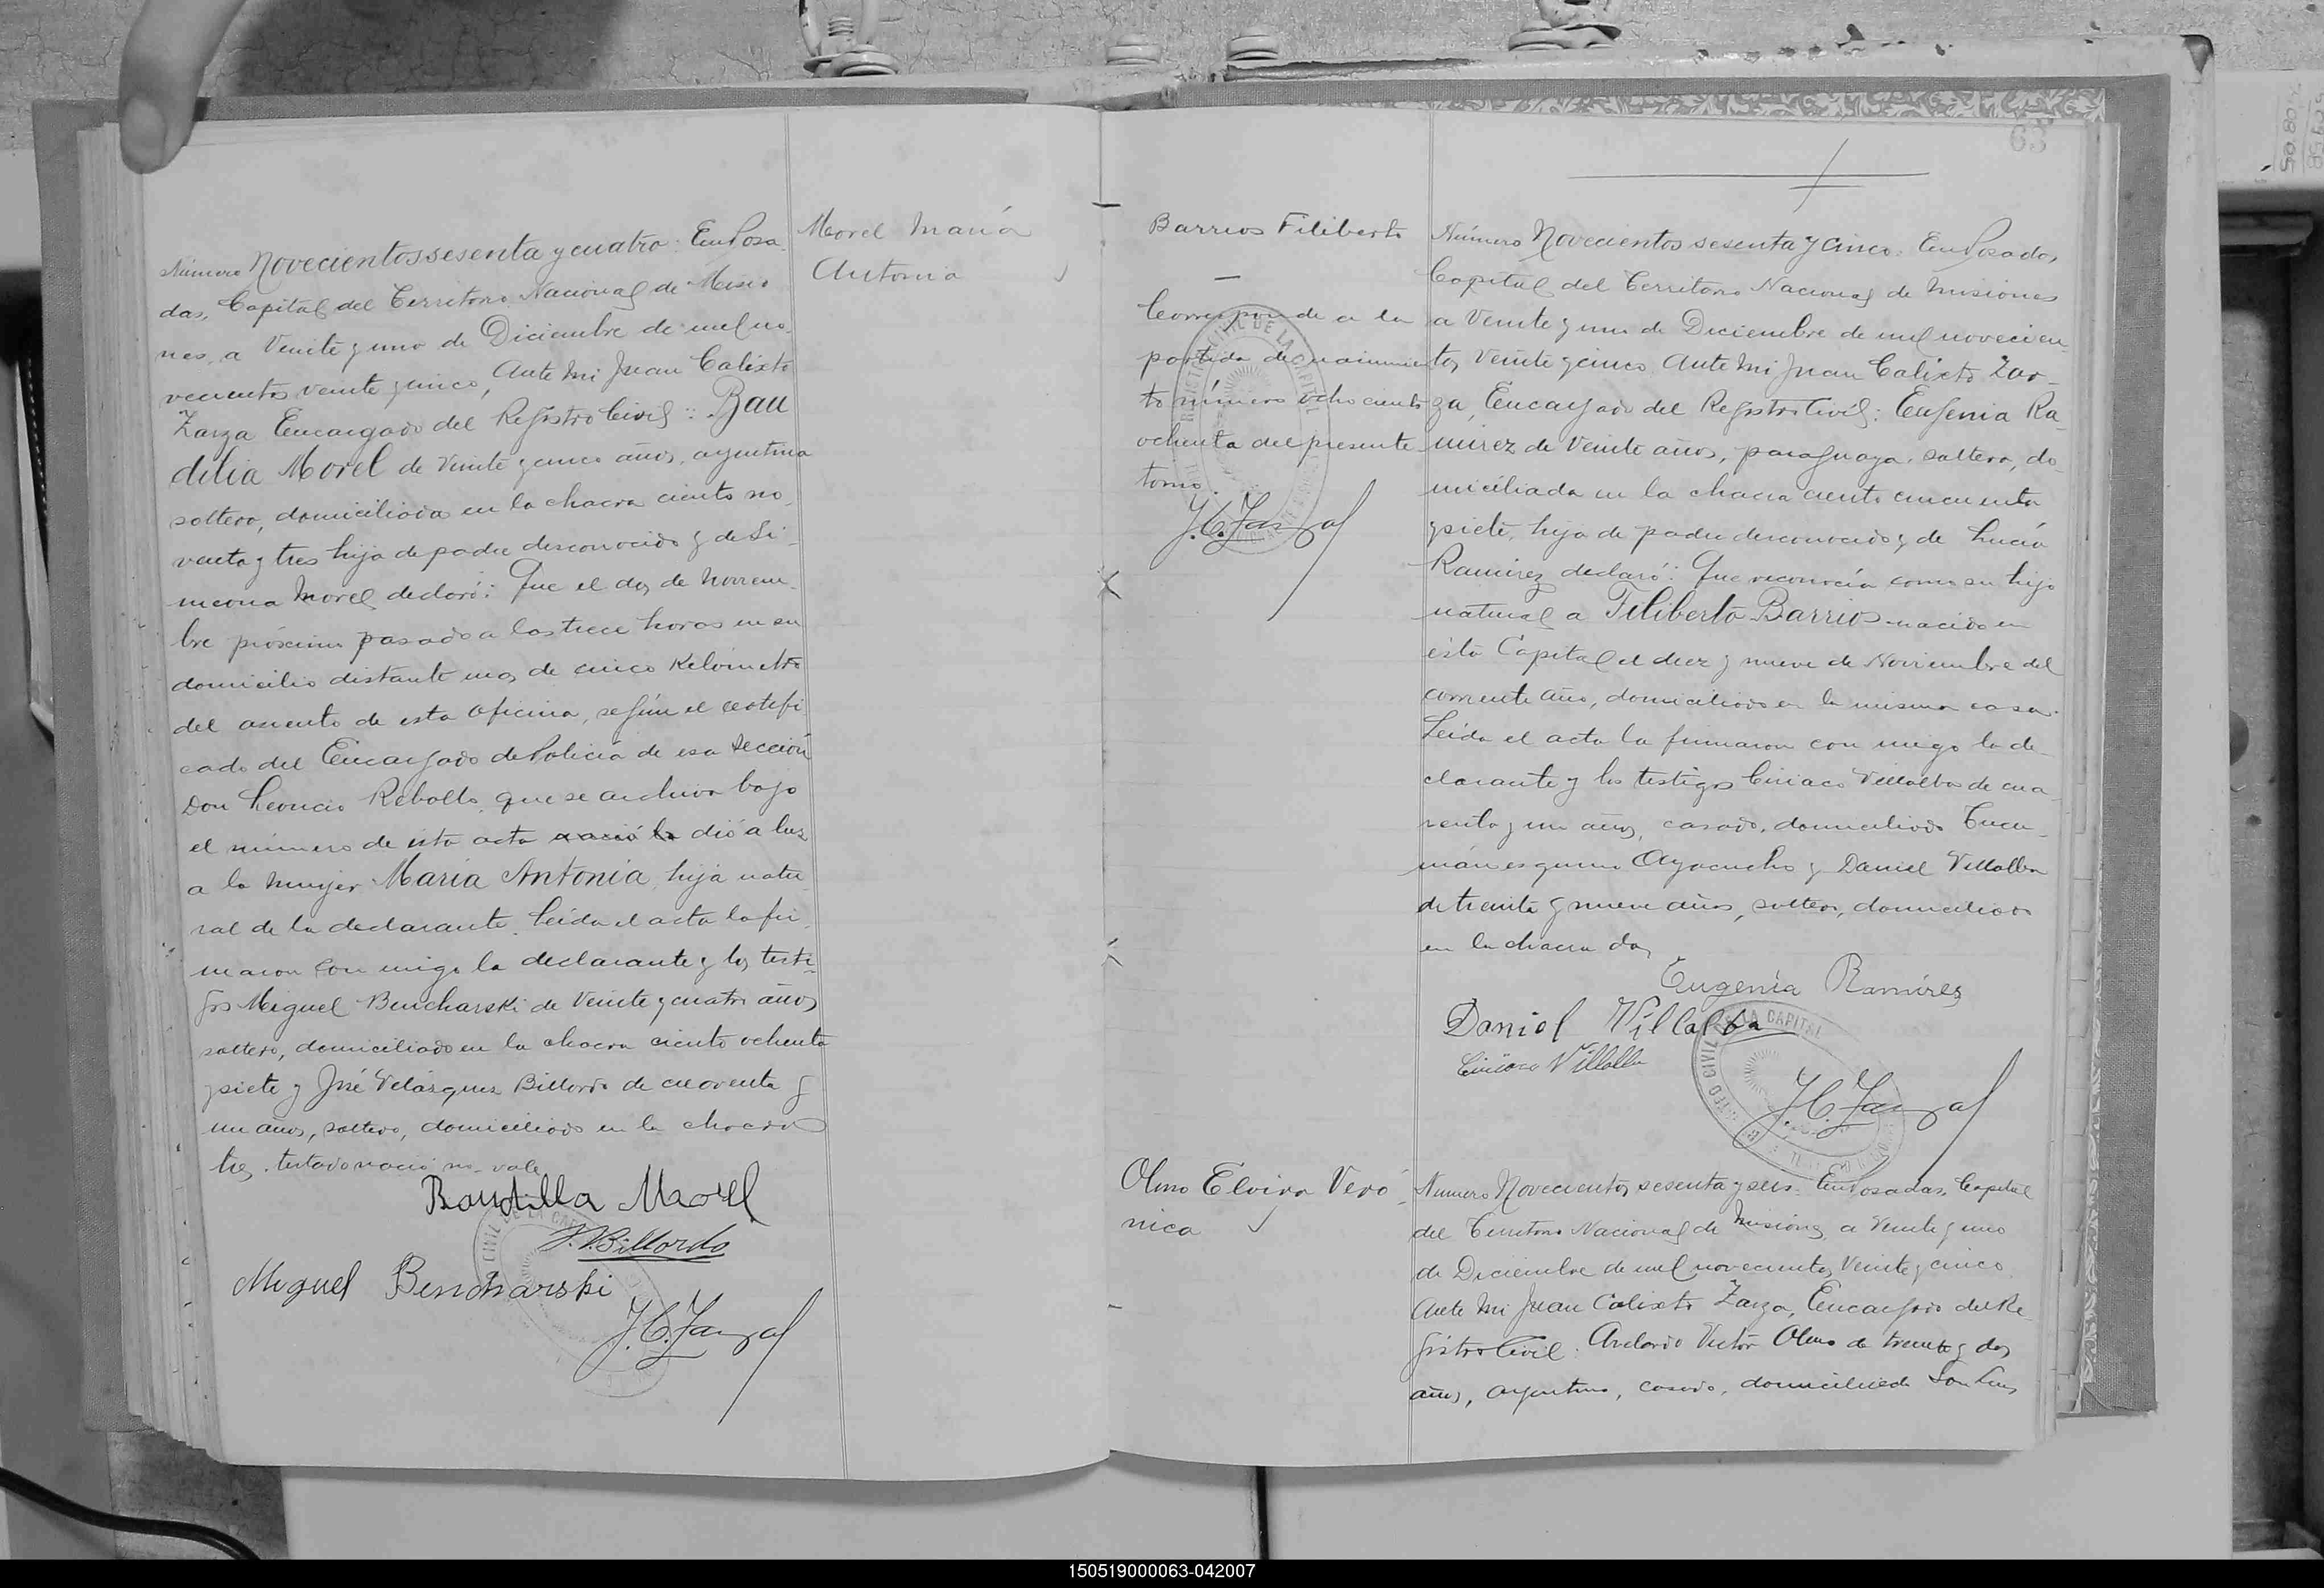 Morel Maria
Antonia
Número Novecientos sesenta y cuatro: En Posa-
das, Capital del Territorio Nacional de Misio
nes, a Veinte y uno de Diciembre de mil no-
vecientos veinte y cinco, Ante Mi Juan Calixto
Zarza Encargado del Registro Civil: Bau
dilia Morel de veinte y cinco años, argentina
soltera, domiciliada en la chacra ciento no-
venta y tres hija de padre desconocido y de Si-
meona Morel declaró: Que el dos de Noviem-
bre próximo pasado a las trece horas en su
domicilio distante mas de cinco Kelómetro
del asiento de esta oficina, según el certifi
cado del Encargado de Policia de esa Sección
Don Leoncio Rebollo, que se archiva bajo
el número de esta acta nació la dió a luz
a la mujer Maria Antonia, hija natu
ral de la declarante. Leida el acta la fir-
maron con migo la declarante y los testi-
gos Miguel Bencharski de Veinte y cuatro años
soltero, domiciliado en la chacra ciento ochenta
y siete y José Velásquez Billordo de cuarenta y
un años, soltero, domiciliado en la chacra
tres. testado nació no vale
Baudilla Morel
J.V. Billordo
Miguel Bencharski
J.C. Zarza
63
Barrios Filiberto
—
Corresponde a la
partida de nacimien
to número ochociento
ochenta del presente
tomo.
J.C. Zarza
Número Novecientos sesenta y cinco: En Posadas,
Capital del Territorio Nacional de Misiones
a Veinte y uno de Diciembre de mil novecien-
tos veinte y cinco Ante Mi Juan Calixto Zar-
za, Encargado del Registro Civil: Eugenia Ra-
mirez de Veinte años, paraguaya, soltera, do-
miciliada en la chacra ciento cincuenta
y siete, hija de padre desconocido y de Lucia
Ramirez declaró: Que reconocía como su hijo
natural a Filiberto Barrios nacido en
esta Capital el diez y nueve de Noviembre del
corriente año, domiciliado en la misma casa.
Leida el acta la firmaron con migo la de-
clarante y los testigos Ciriaco Villalba de cua-
renta y un años, casado, domiciliado Tucu-
mán esquina Ayacucho y Daniel Villalba
de treinta y nueve años, soltero, domiciliado
en la chacra dos
Eugenia Ramires
Daniel Villalba
Ciriaco Villalba
J.C. Zarza
Olmo Elvira Veró-
nica
Número Novecientos sesenta y seis: En Posadas, Capital
del Territorio Nacional de Misiones, a Veinte y uno
de Diciembre de mil novecientos Veinte y cinco
Ante Mi Juan Calixto Zarza, Encargado del Re
gistro Civil: Victor Olmo de treinta y dos
años, argentino, casado, domiciliado San Luis
150519000063-042007